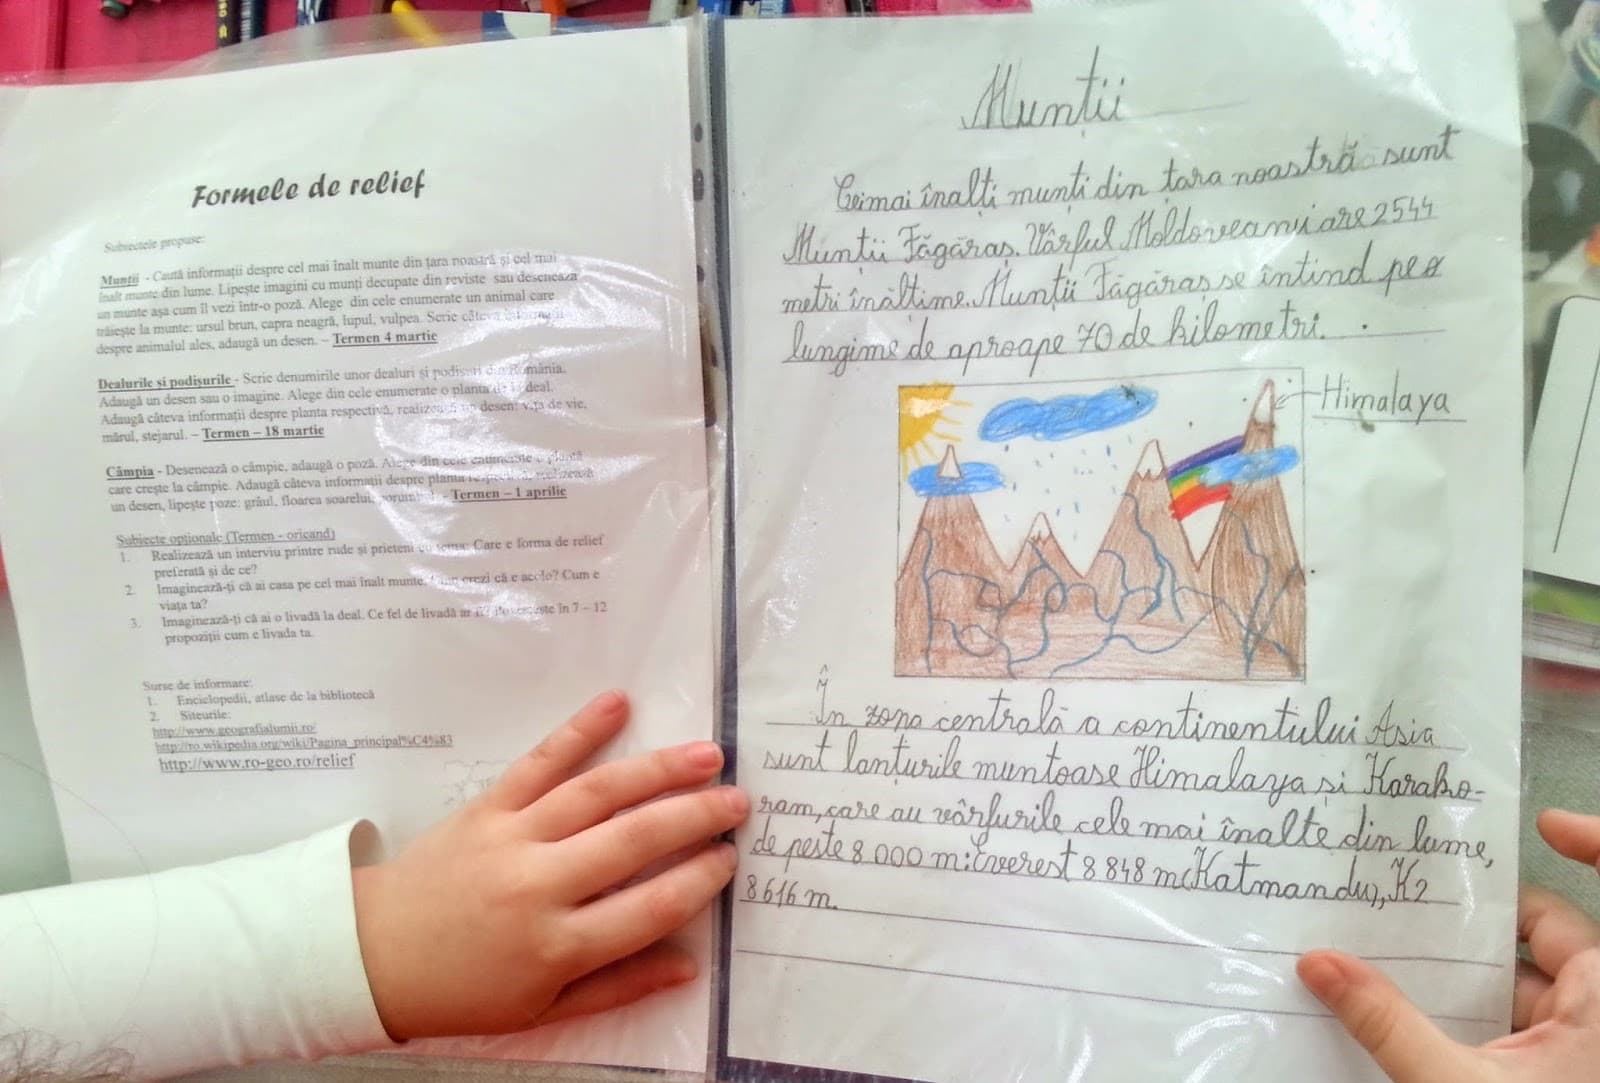 Formele de relief
Subiectele propuse:
Munții - Caută informații despre cel mai înalt munte din țara noastră și cel mai
înalt munte din lume. Lipește imagini cu munți decupate din reviste sau desenează
un munte așa cum îl vezi într-o poză. Alege din cele enumerate un animal care
trăiește la munte: ursul brun, capra neagră, lupul, vulpea. Scrie câteva informații
despre animalul ales, adaugă un desen. – Termen 4 martie
Dealurile și podișurile - Scrie denumirile unor dealuri și podișuri din România.
Adaugă un desen sau o imagine. Alege din cele enumerate o planta de deal.
Adaugă câteva informații despre planta respectivă, realizează un desen: vița de vie,
mărul, stejarul. – Termen – 18 martie
Câmpia - Desenează o câmpie, adaugă o poză. Alege din cele enumerate o plantă
care crește la câmpie. Adaugă câteva informații despre planta respectivă, realizează
un desen, lipește poze: grâul, floarea soarelui, porumbul. - Termen – 1 aprilie
Subiecte opționale (Termen - oricand)
1. Realizează un interviu printre rude și prieteni cu tema: Care e forma de relief
preferată și de ce?
2. Imaginează-ți că ai casa pe cel mai înalt munte. crezi că e acolo? Cum e
viața ta?
3. Imaginează-ți că ai o livadă la deal. Ce fel de livadă ar fi? Povestește în 7 – 12
propoziții cum e livada ta.
Surse de informare:
1. Enciclopedii, atlase de la bibliotecă
2. Siteurile:
http://www.geografialumii.ro/
http://ro.wikipedia.org/wiki/Pagina_principal%C4%83
http://www.ro-geo.ro/relief
Munții
Cei mai înalți munți din țara noastră sunt
Munții Făgăraș. Vârful Moldoveanu are 2544
metri înălțime. Munții Făgăraș se întind pe o
lungime de aproape 70 de kilometri.
Himalaya
În zona centrală a continentului Asia
sunt lanțurile muntoase Himalaya și Karako-
ram, care au vârfurile cele mai înalte din lume,
de peste 8 000 m: Everest 8 848 m(Katmandu), K2
8 616 m.